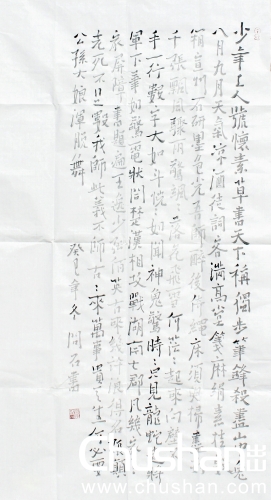 少年上人號懷素草書天下稱獨步筆鋒殺盡山兔
八月九月天氣涼酒徒詞客滿高堂箋麻絹素排
箱宣州石硯墨色光吾師醉後倚繩床須臾掃
千張飄風驟雨驚颯落花飛雪何茫起來向壁
手一行數字大如斗恍如聞神鬼驚時只見龍蛇
驚電狀同楚漢相攻戰湖南七郡凡幾家
家屏障書題遍王逸少張伯英古來幾許浪得名張顛
老死不足數我師此義不師古來萬事貴天生何必要
公孫大娘渾脫舞
癸巳年冬